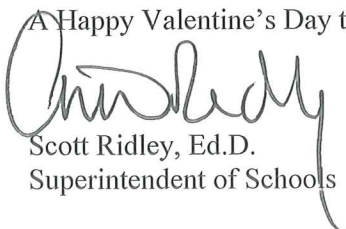 A Happy Valentine’s Day t
Scott Ridley, Ed.D.
Superintendent of Schools